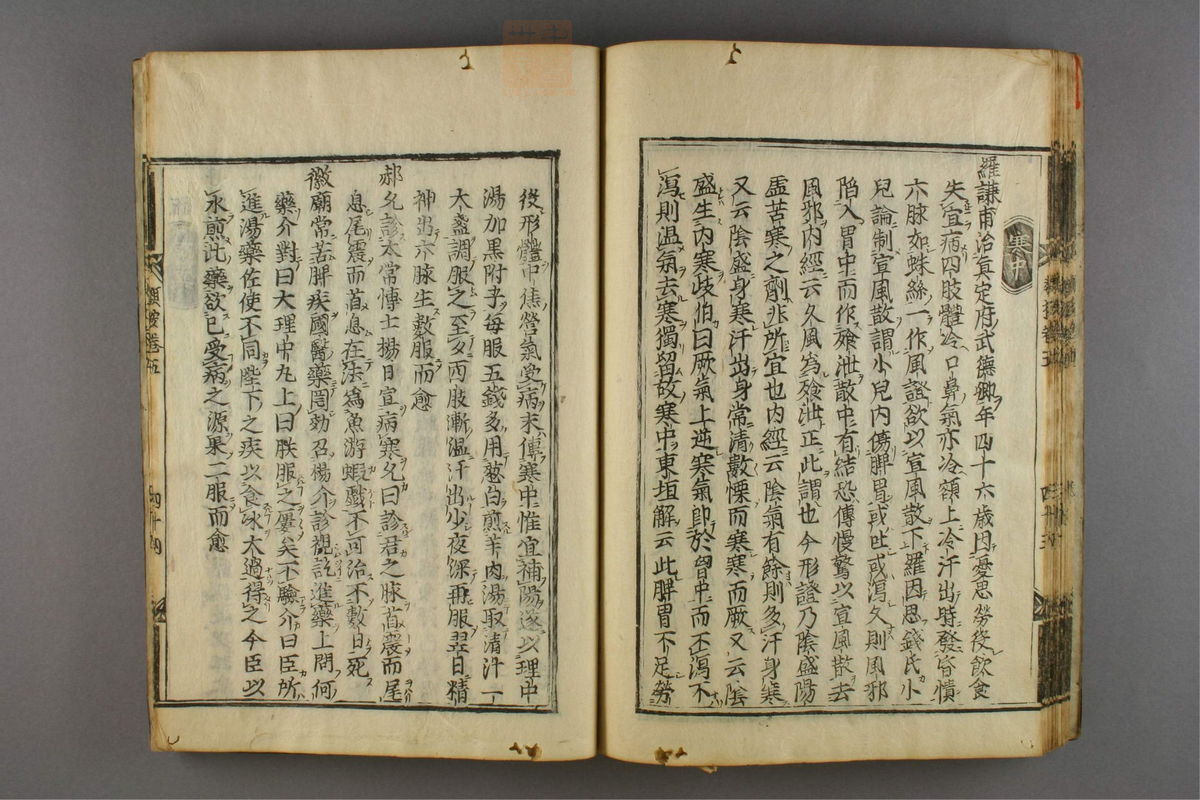 寒中
羅謙甫治真定府武德卿年四十六歲因憂思勞役飲食
失宜病四肢體冷口鼻氣亦冷額上冷汗出時發昏憒
六脉如蛛絲一作風證欲以宣風散下羅因思錢氏小
兒論制宣風散謂小兒內傷脾胃或吐或瀉久則風邪
陷入胃中而作飱泄散中有結恐傳慢驚以宣風散去
風邪內經云久風為飱泄正此謂也今形證乃陰盛陽
虛苦寒之劑非所宜也內經云陰氣有餘則多汗身寒
又云陰盛身寒汗出身常清數慄而寒寒而厥又云陰
盛生內寒歧伯曰厥氣上逆寒氣即於胷中而不瀉不
瀉則温氣去寒獨留故寒中東垣解云此脾胃不足勞
役形體中焦營氣受病末傳寒中惟宜補陽遂以理中
湯加黑附子每服五錢多用葱白煎羊肉湯取清汁一
大盞調服之至夕四肢漸温汗出少夜深再服翌日精
神出六脉生數服而愈
郝允診太常博士楊日宣病寒允曰診君之脉首震而尾
息尾震而首息在法為魚游蝦戲不可治不數日死
徽廟常苦脾疾國醫藥罔効召楊介診視訖進藥上問何
藥介對曰大理中丸上曰朕服之屢矣不驗介曰臣所
進湯藥佐使不同陛下之疾以食冰太過得之今臣以
冰煎此藥欲已受病之源果二服而愈
類案卷五